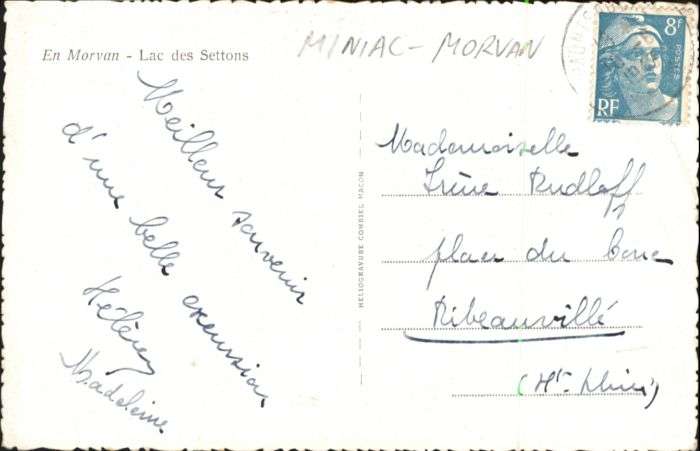 En Morvan - Lac des Settons
MINIAC-MORVAN
8F
POSTES
RF
Meilleur souvenir
d'une belle excursion
Hélène
Madeleine
HELIOGRAVURE COMBIER MACON
Mademoiselle
Irène Rudloff
place du
Ribeauvillé
(Ht-Rhin)